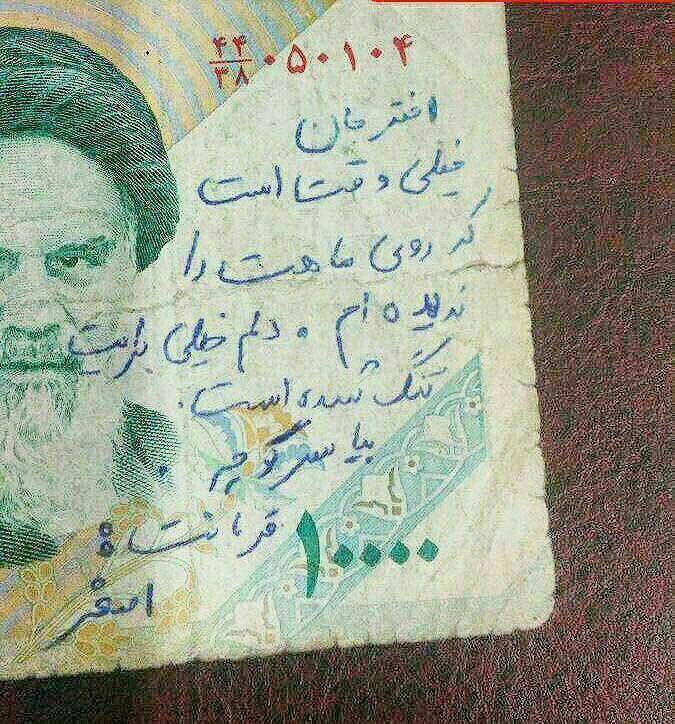 ۴۴/۳۸ ۰۵۰۱۰۴
اختر جان
خیلی وقت است
که روی ماهت را
ندیده ام . دلم خیلی برایت
تنگ شده است .
بیا سر کوچه .
قربانت :
اصغر
۱۰۰۰۰